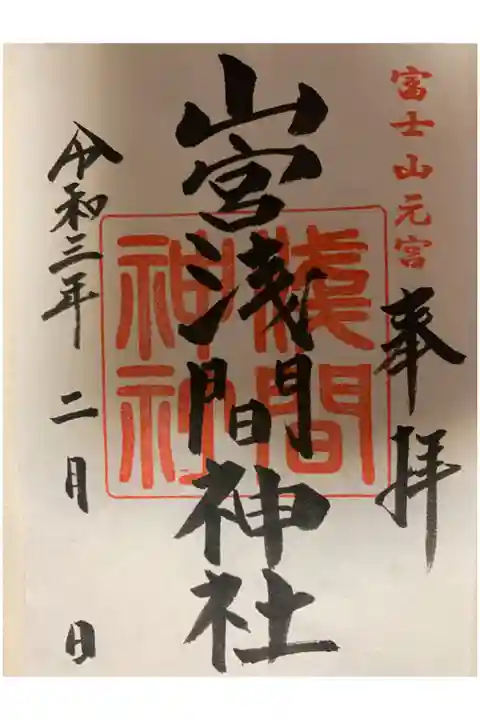 富士山元宮
奉拝
山宮浅間神社
浅間
神社
令和三年 二月 日